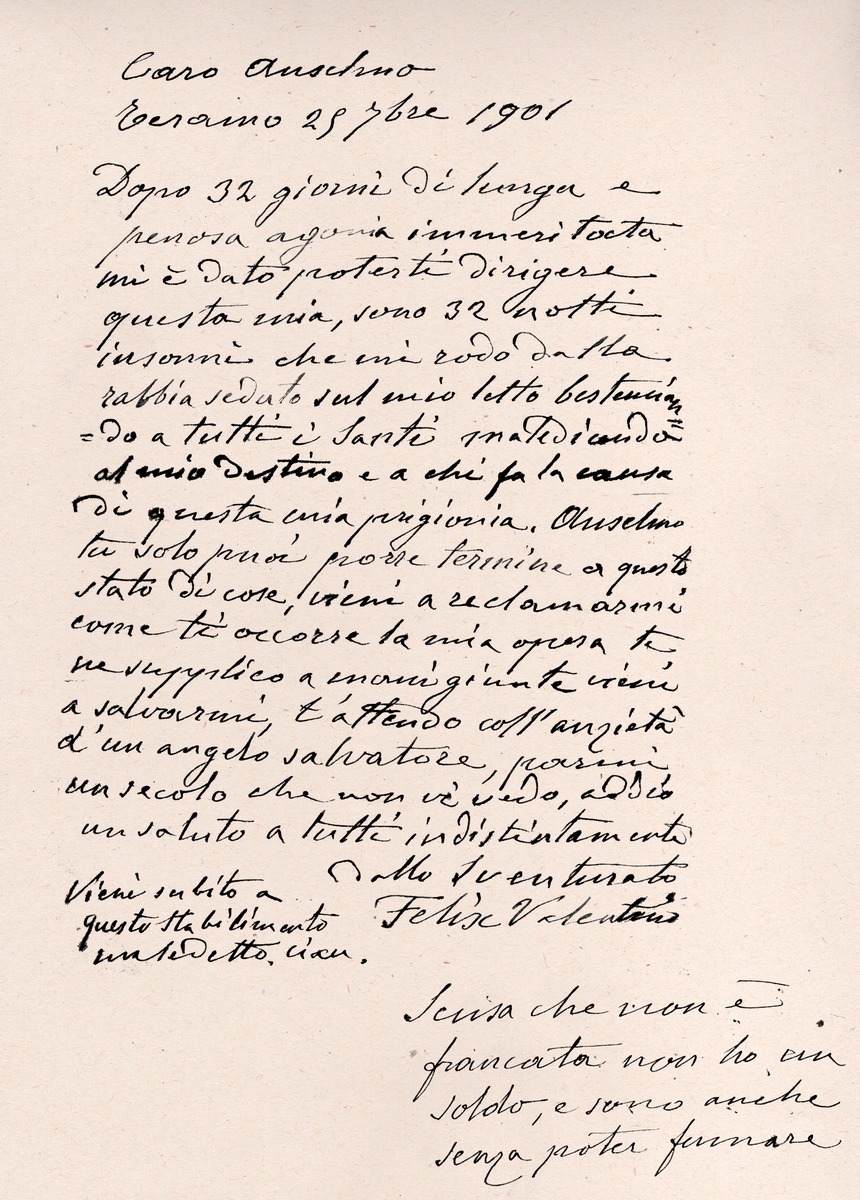 Caro Anselmo
Teramo 25 7bre 1901
Dopo 32 giorni di lunga e
penosa agonia immeritata
mi è dato poterti dirigere
questa mia, sono 32 notti
insonni che mi rodo dalla
rabbia seduto sul mio letto bestemian
=do a tutti i Santi maledicendo
al mio destino e a chi fa la causa
di questa mia prigionia. Anselmo
tu solo puoi porre termine a questo
stato di cose, vieni a reclamarmi
come ti occorre la mia opera te
ne supplico a mani giunte vieni
a salvarmi, t'attendo coll'anzietà
d'un angelo salvatore, parmi
un secolo che non vi vedo, addio
un saluto a tutti indistintamente
dallo Sventurato
Felix Valentino
Vieni subito a
questo stabilimento
maledetto. ciau.
Scusa che non è
francata non ho un
soldo, e sono anche
senza poter fumare